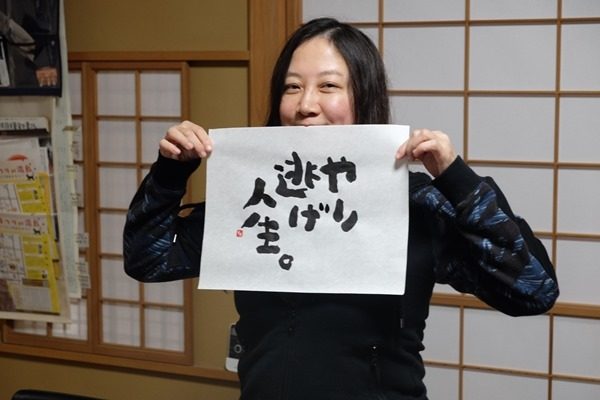 やり
逃げ
人生。